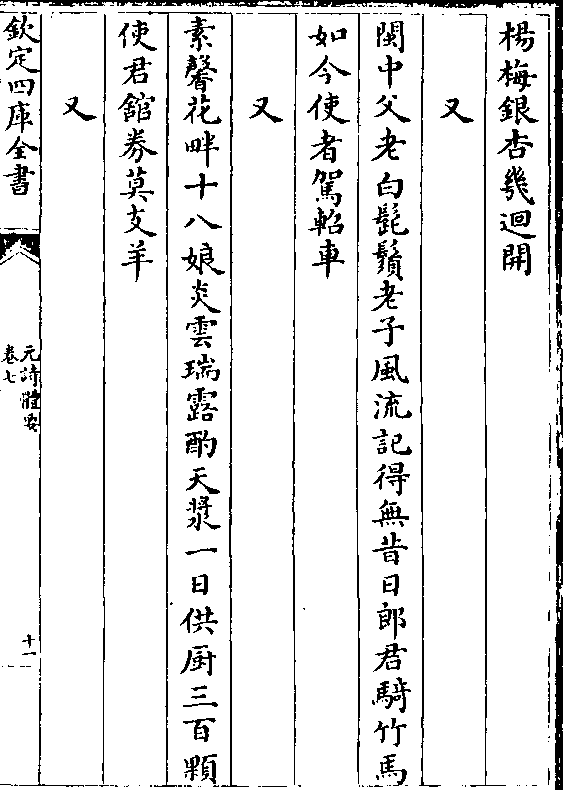 楊梅銀杏幾迴開
又
閩中父老白髭鬚老子風流記得無昔日郎君騎竹馬
如今使者駕軺車
又
素馨花畔十八娘炎雲瑞露酌天漿一日供厨三百顆
使君舘劵莫支羊
又
欽定四庫全書
元詩體要
卷七
十一